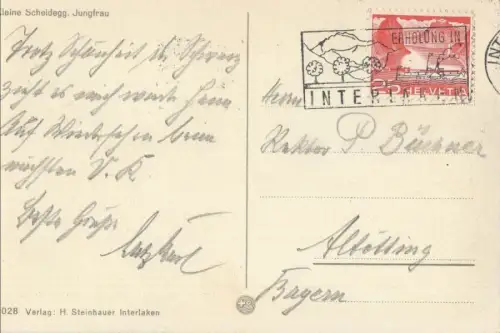 Kleine Scheidegg. Jungfrau
Trotz Schönheit d. Schweiz
zieht es mich wieder heim
Auf Wiedersehen beim
nächsten V. K.
Beste Grüße
ERHOLUNG IN
INTERLAKEN
HELVETIA
INT
Herrn
Rektor P Büchner
Altötting
Bayern
028 Verlag: H. Steinhauer Interlaken